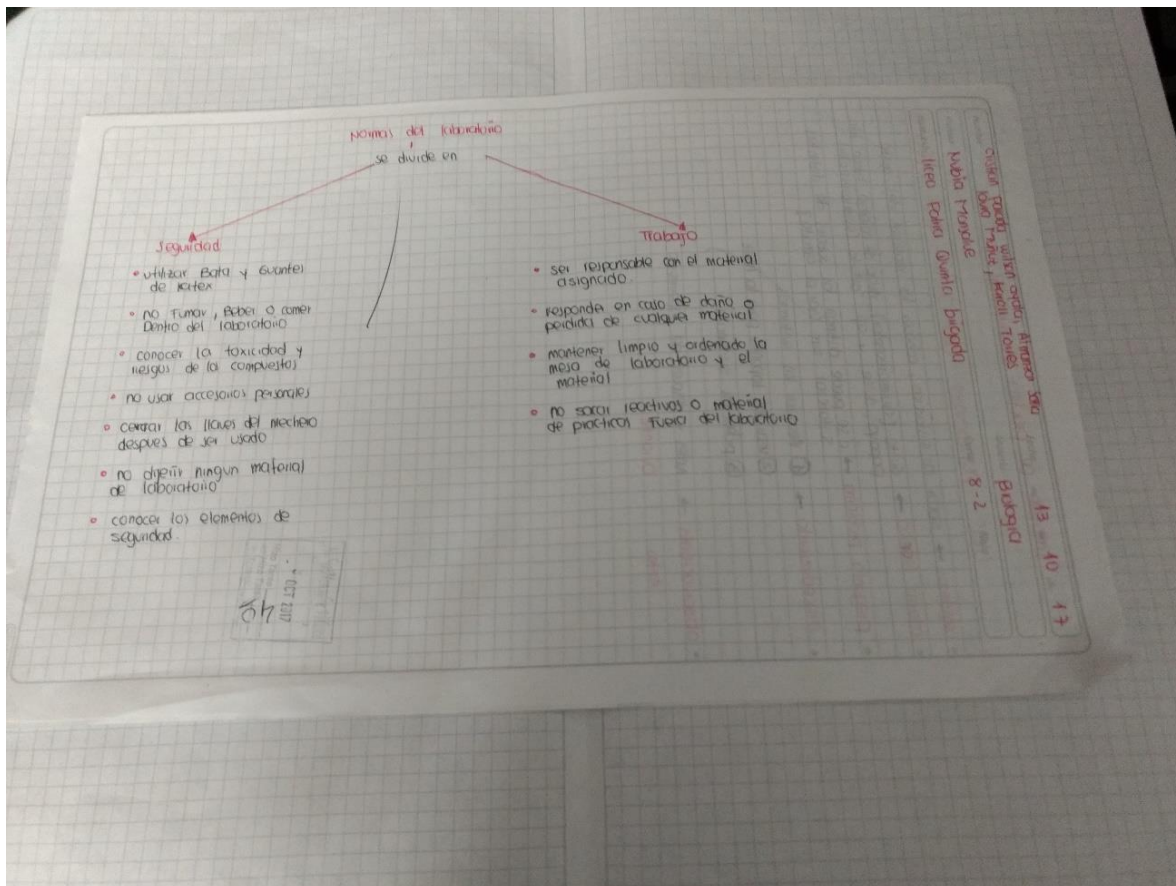 Normas del laboratorio
se divide en
Seguridad
• utilizar Bata y Guantes
de latex
• no Fumar, Beber o comer
Dentro del laboratorio
• conocer la toxicidad y
riesgos de la compuestos
• no usar accesorios personales
• cerrar las llaves del mechero
despues de ser usado
• no ningun material
de laboratorio
• conocer los elementos de
seguridad
Trabajo
• ser responsable con el material
asignado
• responder en caso de daño o
perdida de cualquier material
• mantener limpio y ordenado la
mesa de laboratorio y el
material
• no sacar reactivos o material
de practicas Fuera del laboratorio
13 10 17
Torres
Nubia Biologia
8-2
Liceo Patria Quinta brigada
OCT 2017
40